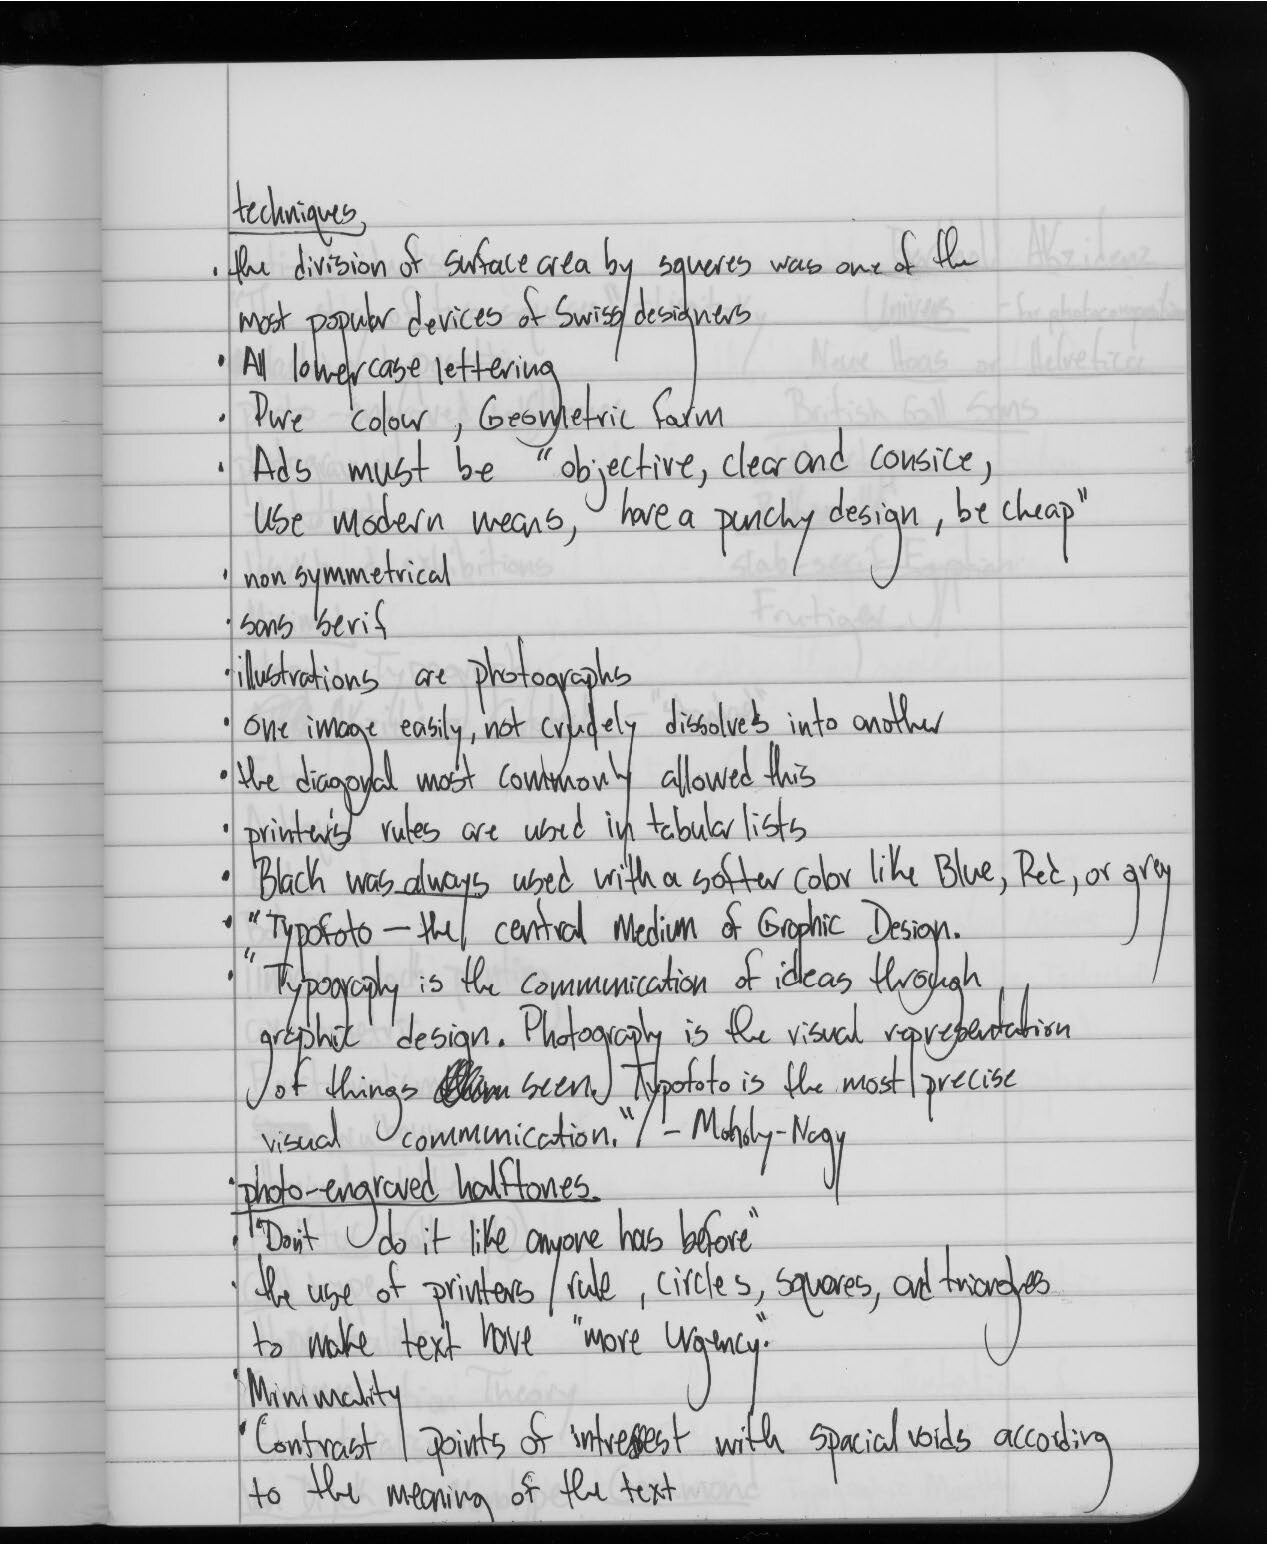 techniques,
· the division of surface area by squeres was one of the
most popular devices of Swiss designers
· All lowercase lettering
· Pure colour, Geometric farm
· Ads must be "objective, clear and consice,
Use modern means, have a punchy design, be cheap"
· non symmetrical
· sans serif
· illustrations are photographs
· one image easily, not crudely dissolves into another
· the diagonal most commonly allowed this
· printer's rules are used in tabular lists
· Black was always used with a softer color like Blue, Red, or grey
· "Typofoto — the central Medium of Graphic Design.
· "Typography is the communication of ideas through
graphic design. Photography is the visual representation
of things seen. Typofoto is the most precise
visual communication." - Moholy-Nagy
· photo-engraved halftones.
· "Don't do it like anyone has before"
· the use of printers rule, circles, squares, and triangles
to make text have "more urgency."
· Minimality
· Contrast points of intresest with spacial voids according
to the meaning of the text
Akzidenz
Univers - for photocomposition
Neue Haas or Helvetica
British Gill Sans
slab-serif Egyptian
Frutiger